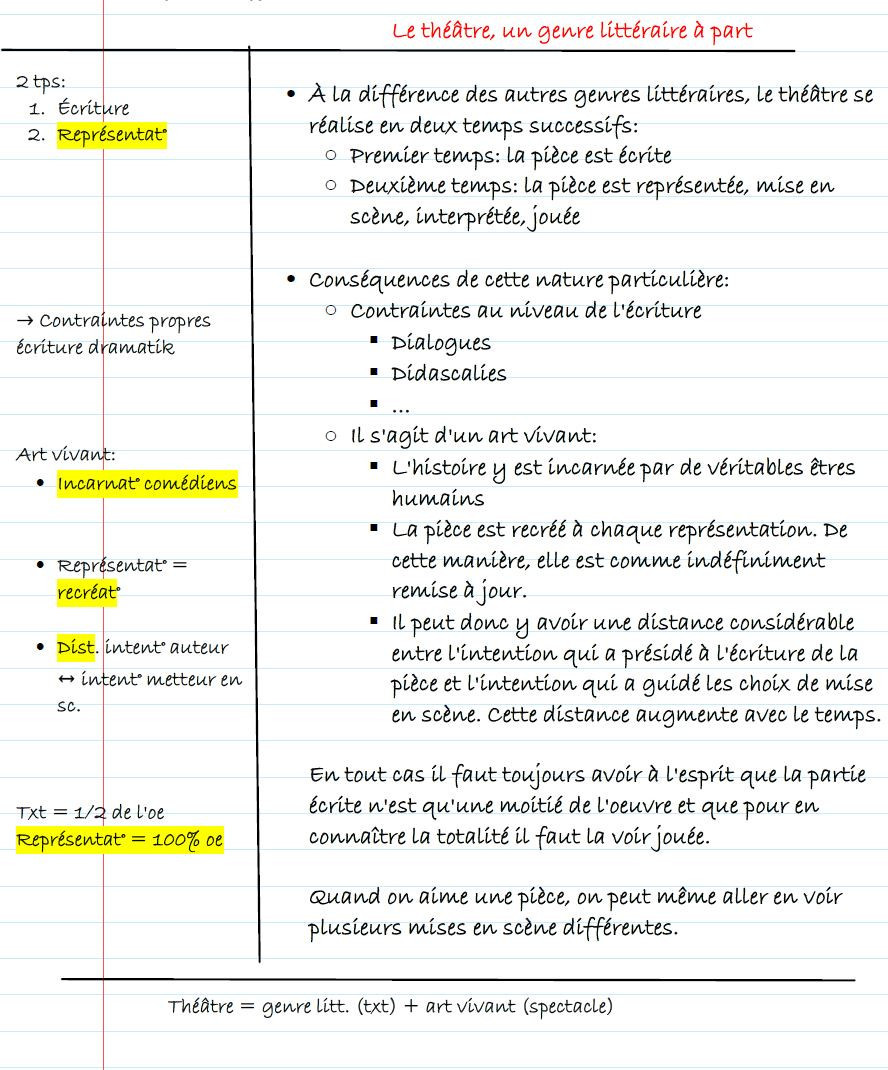 Le théâtre, un genre littéraire à part
2 tps:
1. Écriture
2. Représentat°
→ Contraintes propres
écriture dramatik
Art vivant:
• Incarnat° comédiens
• Représentat° =
recréat°
• Dist. intent° auteur
↔ intent° metteur en
sc.
Txt = 1/2 de l'oe
Représentat° = 100% oe
• À la différence des autres genres littéraires, le théâtre se
réalise en deux temps successifs:
○ Premier temps: la pièce est écrite
○ Deuxième temps: la pièce est représentée, mise en
scène, interprétée, jouée
• Conséquences de cette nature particulière:
○ Contraintes au niveau de l'écriture
▪ Dialogues
▪ Didascalies
▪ ...
○ Il s'agit d'un art vivant:
▪ L'histoire y est incarnée par de véritables êtres
humains
▪ La pièce est recréé à chaque représentation. De
cette manière, elle est comme indéfiniment
remise à jour.
▪ Il peut donc y avoir une distance considérable
entre l'intention qui a présidé à l'écriture de la
pièce et l'intention qui a guidé les choix de mise
en scène. Cette distance augmente avec le temps.
En tout cas il faut toujours avoir à l'esprit que la partie
écrite n'est qu'une moitié de l'oeuvre et que pour en
connaître la totalité il faut la voir jouée.
Quand on aime une pièce, on peut même aller en voir
plusieurs mises en scène différentes.
Théâtre = genre litt. (txt) + art vivant (spectacle)